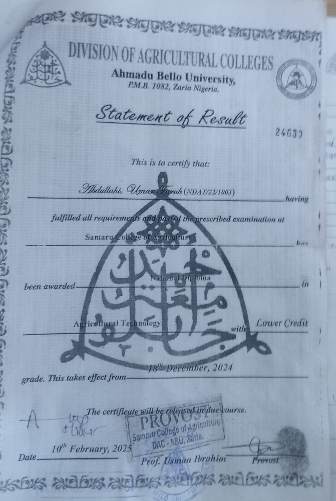 DIVISION OF AGRICULTURAL COLLEGES
Ahmadu Bello University,
P.M.B. 1082, Zaria Nigeria.
Statement of Result
24635
This is to certify that:
Abdullahi, Umar (NDAT/22/1003)
having
fulfilled all requirements and passed the prescribed examination at
Samaru College of Agriculture
has
been awarded National Diploma in
Agricultural Technology with Lower Credit
grade. This takes effect from 18th December, 2024
The certificate will be released in due course.
PROVOST
Samaru College of Agriculture
DAC - ABU, Zaria.
10th February, 2025
Date Prof. Usman Ibrahim Provost